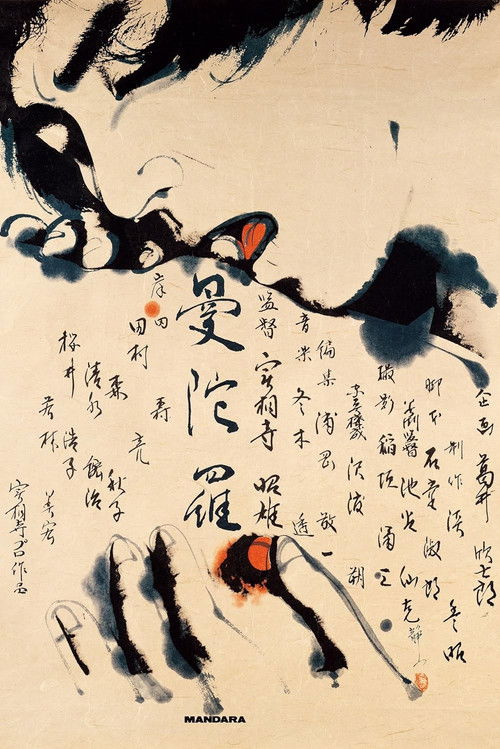 企画 葛井欣士郎
制作 淡 豊昭
脚本 石堂淑朗
美術監督 池谷仙克
静山
撮影 稲垣涌三
沢渡 朔
編集 浦岡敬一
音楽 冬木 透
監督 実相寺昭雄
曼陀羅
岸田 森
田村 亮
森 秋子
清水 紘治
桜井 浩子
若林 美宏
実相寺プロ作品
MANDARA